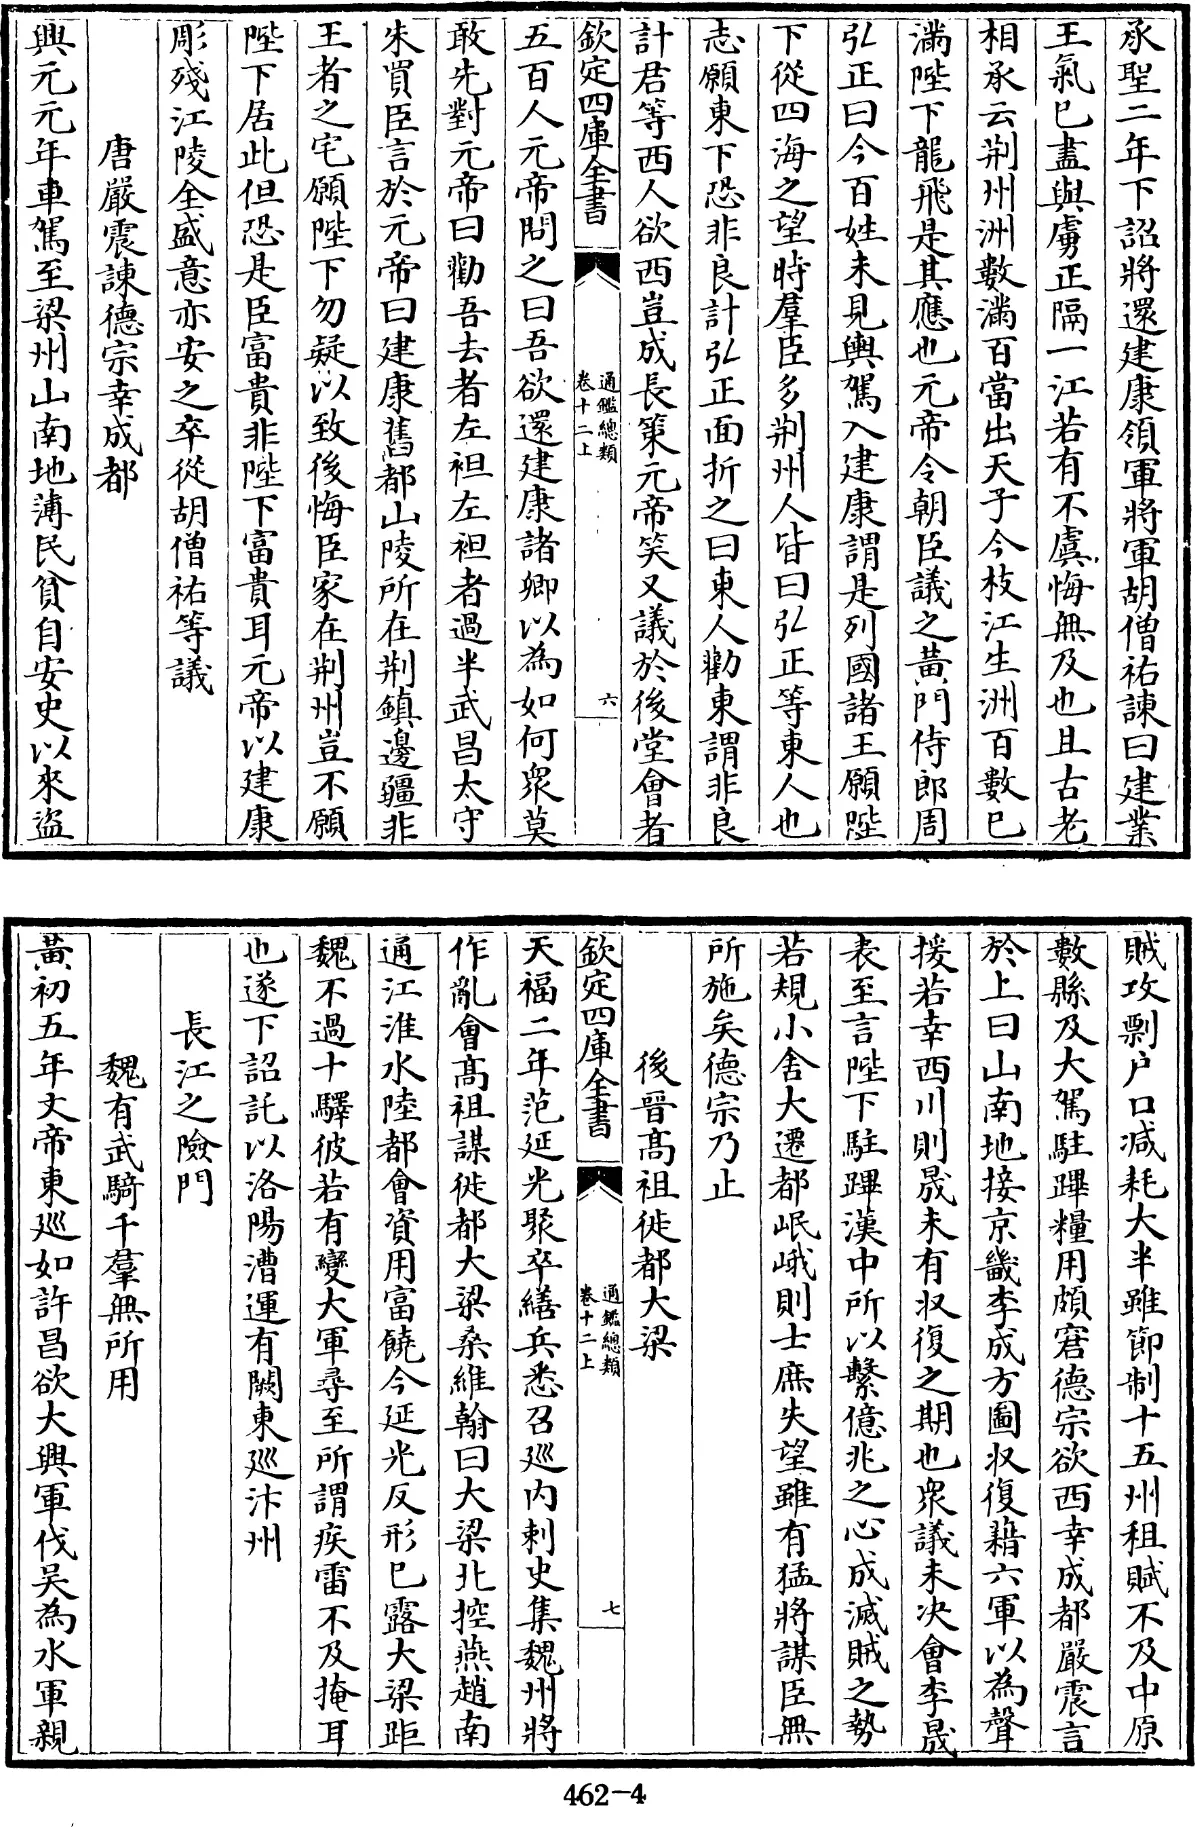 承聖二年下詔將還建康領軍將軍胡僧祐諫曰建業
王氣已盡與虜正隔一江若有不虞悔無及也且古老
相承云荆州洲數滿百當出天子今枝江生洲百數已
滿陛下龍飛是其應也元帝令朝臣議之黃門侍郎周
弘正曰今百姓未見輿駕入建康謂是列國諸王願陛
下從四海之望時羣臣多荆州人皆曰弘正等東人也
志願東下恐非良計弘正面折之曰東人勸東謂非良
計君等西人欲西豈成長策元帝笑又議於後堂會者
欽定四庫全書
通鑑總類
卷十二上
六
五百人元帝問之曰吾欲還建康諸卿以為如何衆莫
敢先對元帝曰勸吾去者左袒左袒者過半武昌太守
朱買臣言於元帝曰建康舊都山陵所在荆鎮邊疆非
王者之宅願陛下勿疑以致後悔臣家在荆州豈不願
陛下居此但恐是臣富貴非陛下富貴耳元帝以建康
彫殘江陵全盛意亦安之卒從胡僧祐等議
唐嚴震諫德宗幸成都
興元元年車駕至梁州山南地薄民貧自安史以來盜
賊攻剽户口減耗大半雖節制十五州租賦不及中原
數縣及大駕駐蹕糧用頗窘德宗欲西幸成都嚴震言
於上曰山南地接京畿李成方圖收復藉六軍以為聲
援若幸西川則晟未有收復之期也衆議未决會李晟
表至言陛下駐蹕漢中所以繫億兆之心成滅賊之勢
若規小舍大遷都岷峨則士庶失望雖有猛將謀臣無
所施矣德宗乃止
後晉髙祖徙都大梁
欽定四庫全書
通鑑總類
卷十二上
七
天福二年范延光聚卒繕兵悉召廵内刺史集魏州將
作亂會髙祖謀徙都大梁桑維翰曰大梁北控燕趙南
通江淮水陸都會資用富饒今延光反形已露大梁距
魏不過十驛彼若有變大軍尋至所謂疾雷不及掩耳
也遂下詔託以洛陽漕運有闕東廵汴州
長江之險門
魏有武騎千羣無所用
黃初五年文帝東廵如許昌欲大興軍伐吳為水軍親
462-4